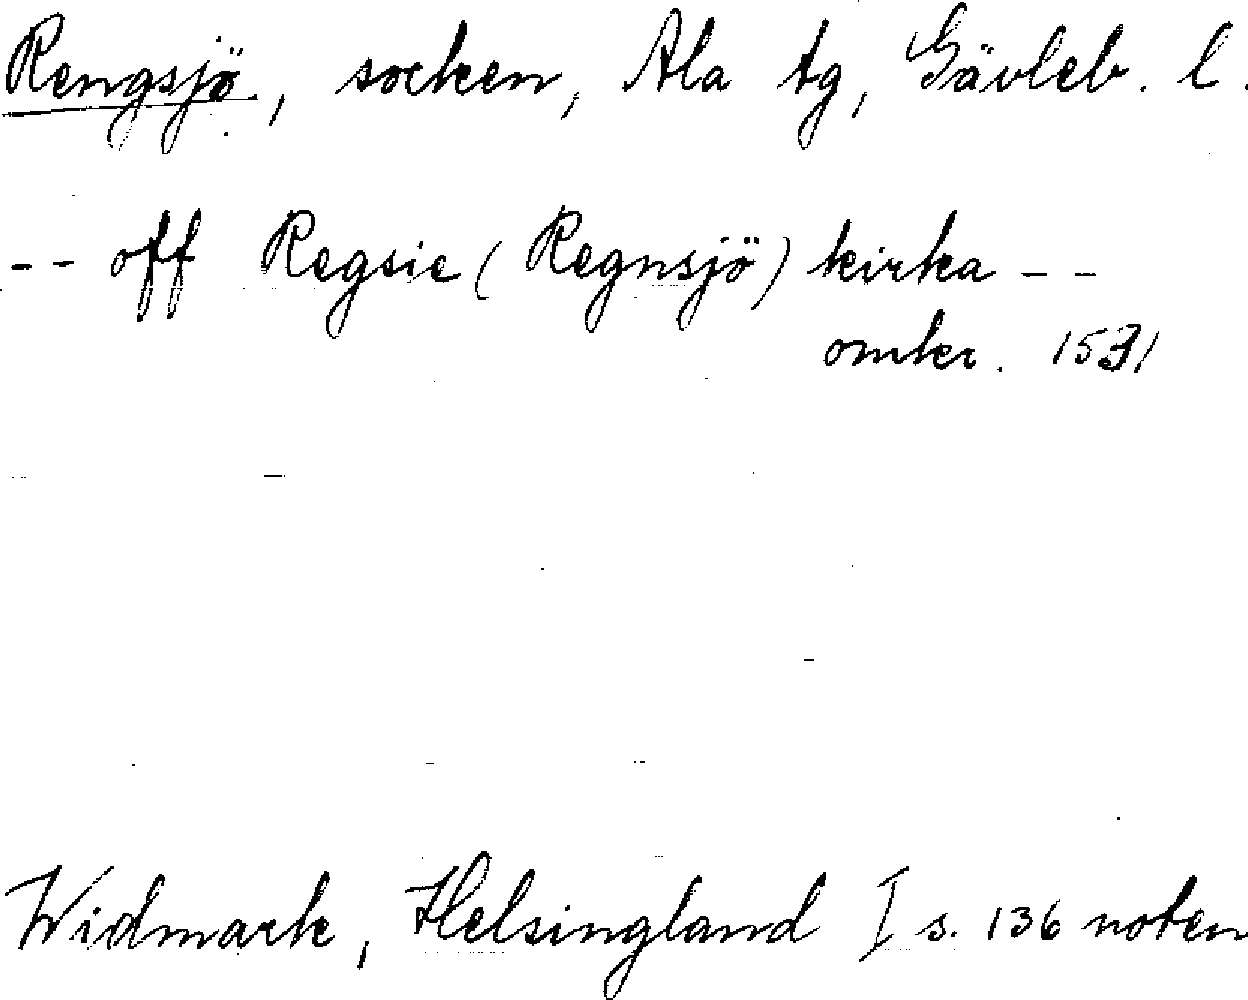 Rengsjö, socken, Ala tg, Gävleb. l.
-- off Regsie (Regnsjö) kirka --
omkr. 1531
Widmark, Helsingland I s. 136 noten